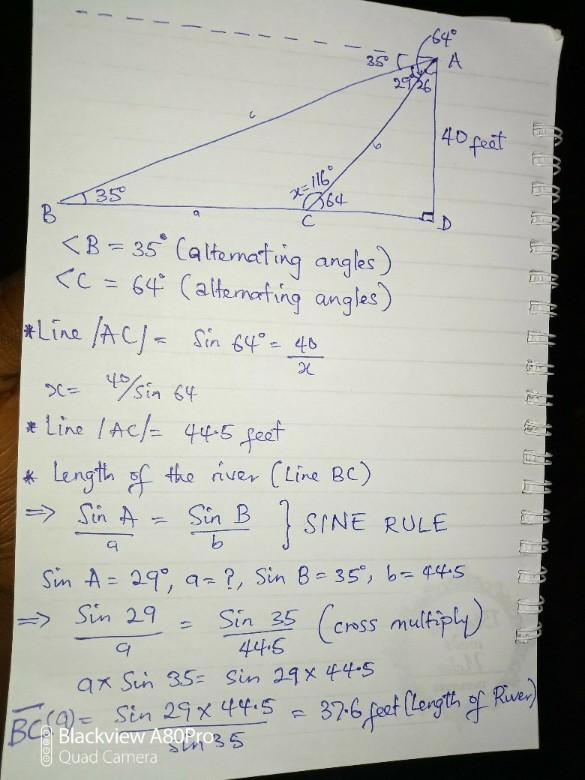 64°
35°
A
29 26
c
b
40 feet
x=116°
35°
64
B
a
C
D
<B = 35° (alternating angles)
<C = 64° (alternating angles)
*Line /AC/ = Sin 64° = 40/x
x= 40/Sin 64
* Line /AC/= 44.5 feet
* Length of the river (Line BC)
=> Sin A/a = Sin B/b } SINE RULE
Sin A = 29°, a = ?, Sin B = 35°, b = 44.5
=> Sin 29/a = Sin 35/44.5 (cross multiply)
a x Sin 35 = Sin 29 x 44.5
BC(a) = Sin 29 x 44.5/Sin 35 = 37.6 feet (Length of River)
Blackview A80Pro
Quad Camera